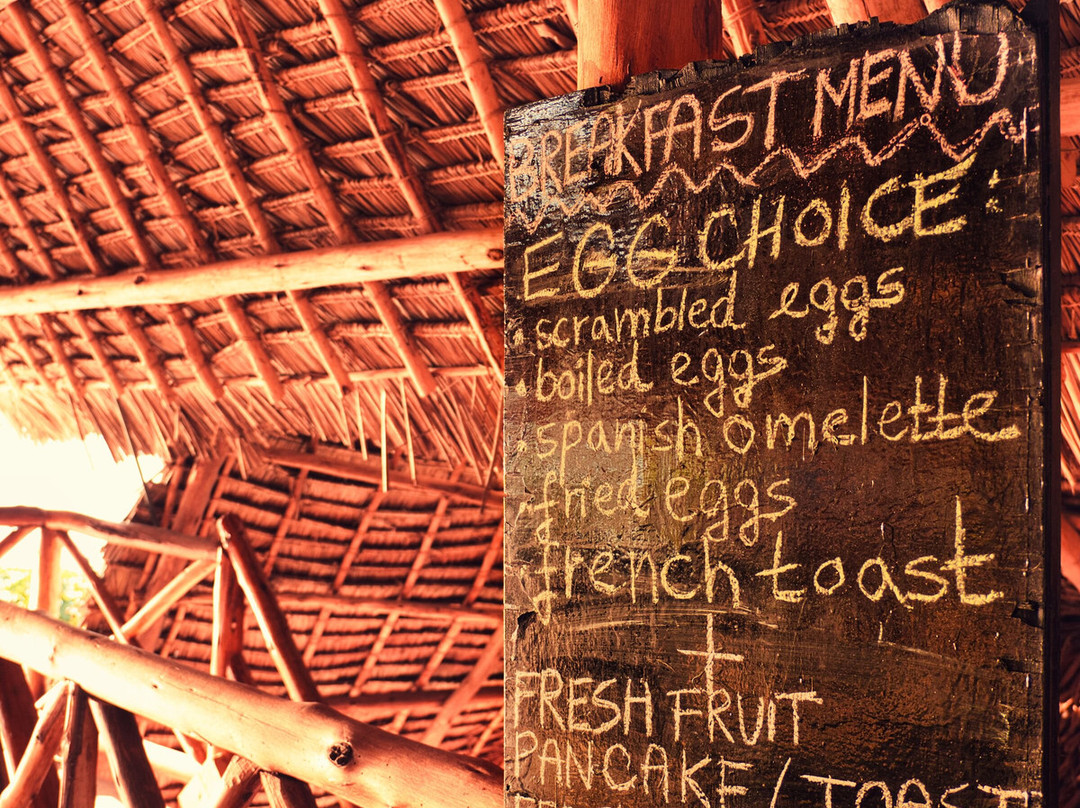 BREAKFAST MENU
EGG CHOICE:
• scrambled eggs
• boiled eggs
• spanish omelette
• fried eggs
• french toast
+
FRESH FRUIT
PANCAKE / TOAST